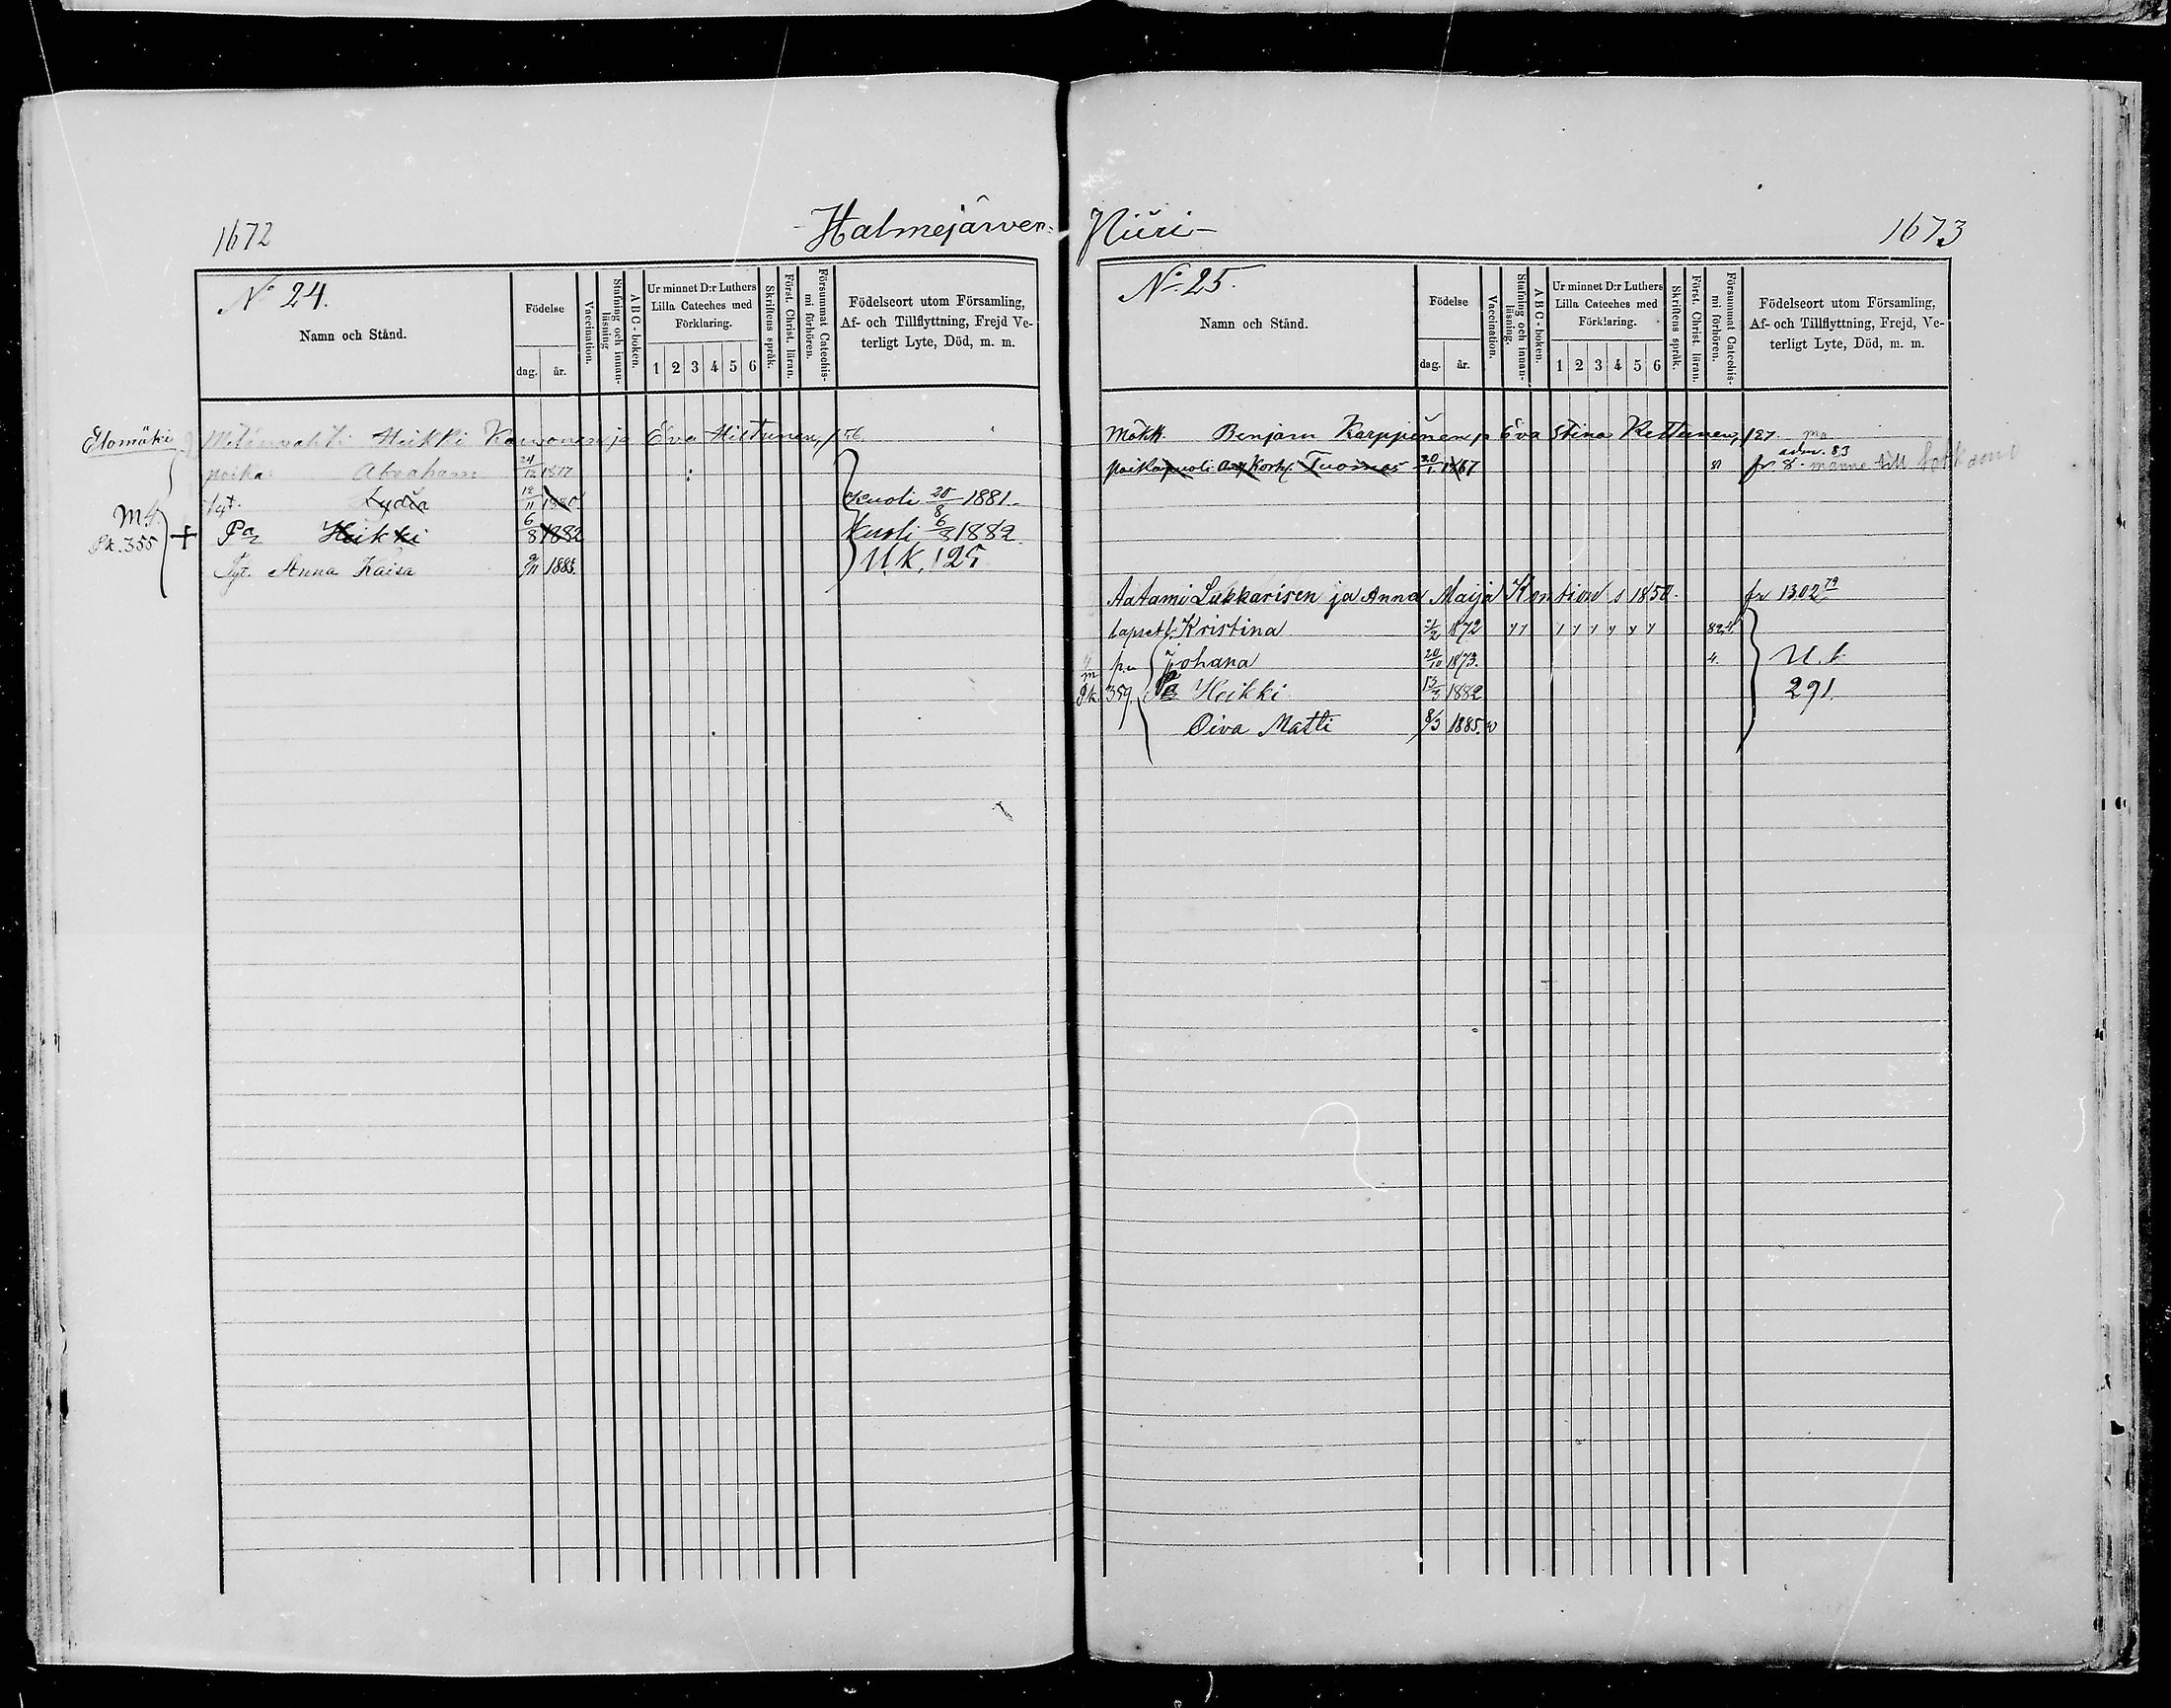 1672
Halmejärven-
Nº 24.
Namn och Stånd.
Födelse
dag. år.
Vaccination.
Stafning och innan-
läsning
A B C - boken.
Ur minnet D:r Luthers
Lilla Cateches med
Förklaring.
1 2 3 4 5 6
Skriftens språk.
Först. Christ. läran.
Försummat Catechis-
mi förhören.
Födelseort utom Församling,
Af- och Tillflyttning, Frejd Ve-
terligt Lyte, Död, m. m.
Heikki ja Eva Hiltunen, 156
poika Abraham 24/12 1877
Tyt. Lydia 12/11 1880 Kuoli 20/8 1881.
Pa Heikki 6/8 1882 Kuoli 6/8 1882
Tyt. Anna Kaisa 1885 U.K. 125
Elomäki
M4
Pk. 355
+
Niiri-
1673
Nº 25.
Namn och Stånd.
Födelse
dag. år.
Vaccination.
Stafning och innan-
läsning.
A B C - boken.
Ur minnet D:r Luthers
Lilla Cateches med
Förklaring.
1 2 3 4 5 6
Skriftens språk.
Först. Christ. läran.
Försummat Catechis-
mi förhören.
Födelseort utom Församling,
Af- och Tillflyttning, Frejd, Ve-
terligt Lyte, Död, m. m.
Mökk. Benjam Karppinen ja Eva Stina Kettunen, 127
poikapuoli Tuomas 20/1 1867
Aatami Lukkarisen ja Anna Maija s 1850. fr 1302 79
lapset Kristina 2/2 1872
johana 20/10 1873. 4. U.k
Pk. 359. Heikki 13/3 1882 291
Oiva Matti 8/3 1885.